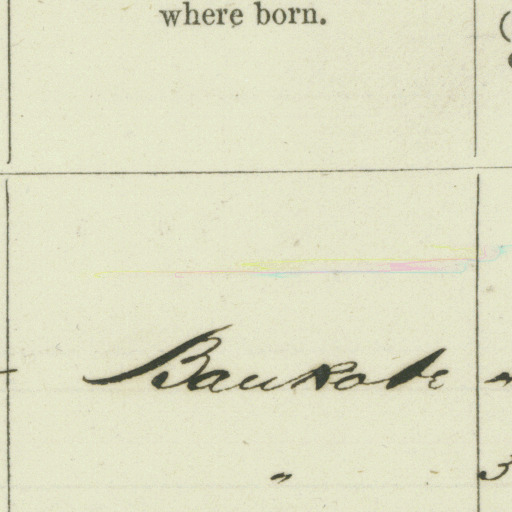 where born.
Baukobe
"
3